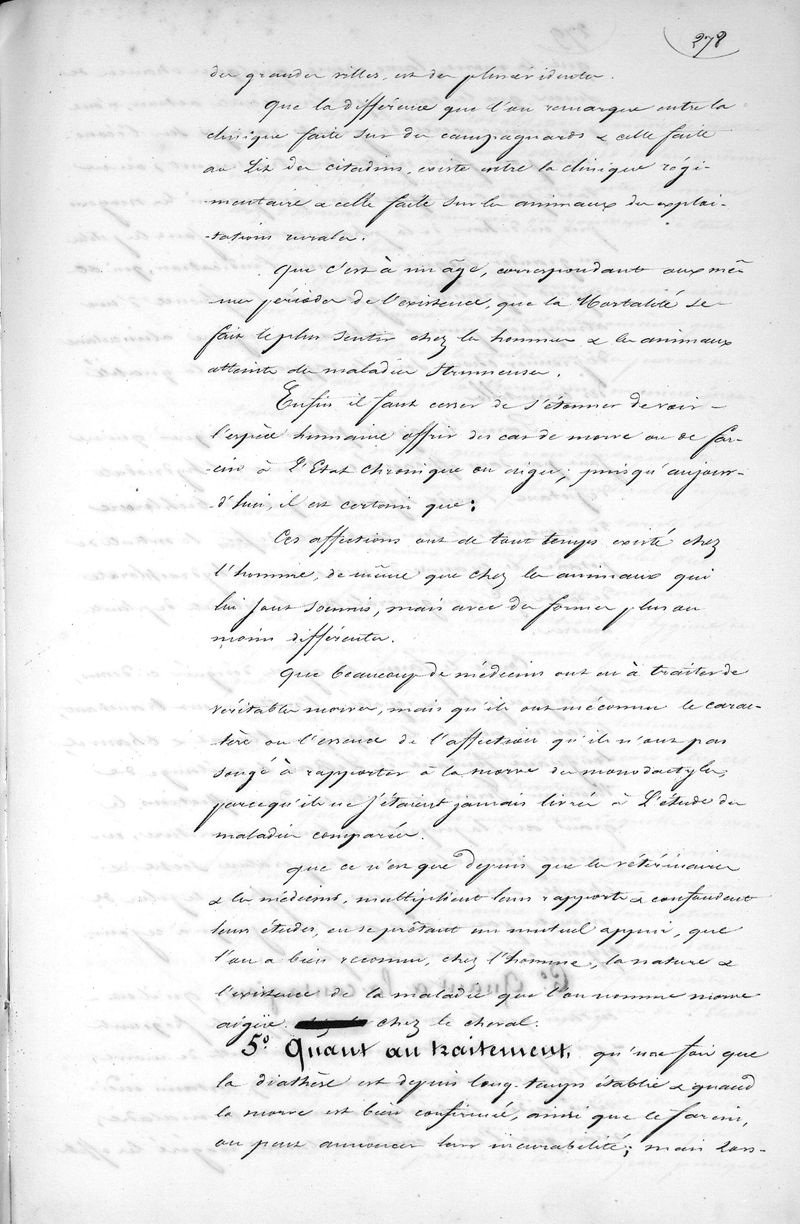 278
des grandes villes, est des plus évidentes.
Que la différence que l'on remarque entre la
clinique faite sur des campagnards & celle faite
au Lit des citadins, existe entre la clinique régi-
mentaire & celle faite sur les animaux des exploi-
-tations rurales.
Que c'est à un âge, correspondant aux mê-
mes périodes de l'existence, que la Mortalité se
fait le plus sentir chez les hommes & les animaux
atteints de maladies strumeuses.
Enfin il faut cesser de s'étonner de voir
l'espèce humaine offrir des cas de morve ou de far-
-cin à L'Etat chronique ou aigu; puisqu'aujour-
-d'hui, il est certain que:
Ces affections ont de tout temps existé chez
l'homme, de même que chez les animaux qui
lui sont soumis, mais avec des formes plus ou
moins différentes.
Que beaucoup de médecins ont eu à traiter de
véritables morves, mais qu'ils ont méconnu le carac-
-tère ou l'essence de l'affection qu'ils n'ont pas
songé à rapporter à la morve des monodactyles,
parcequ'ils ne s'étaient jamais livrés à L'étude des
maladies comparées.
que ce n'est que depuis que les vétérinaires
& les médecins, multiplient leurs rapports & confondent
leurs études, en se prêtant un mutuel appui, que
l'on a bien reconnu, chez l'homme, la nature &
l'existence de la maladie que l'on nomme morve
aigüe chez le cheval.
5° Quant au traitement, qu'une fois que
la diathèse est depuis long-temps établie & quand
la morve est bien confirmée, ainsi que le farcin,
on peut annoncer leur incurabilité; mais lors-